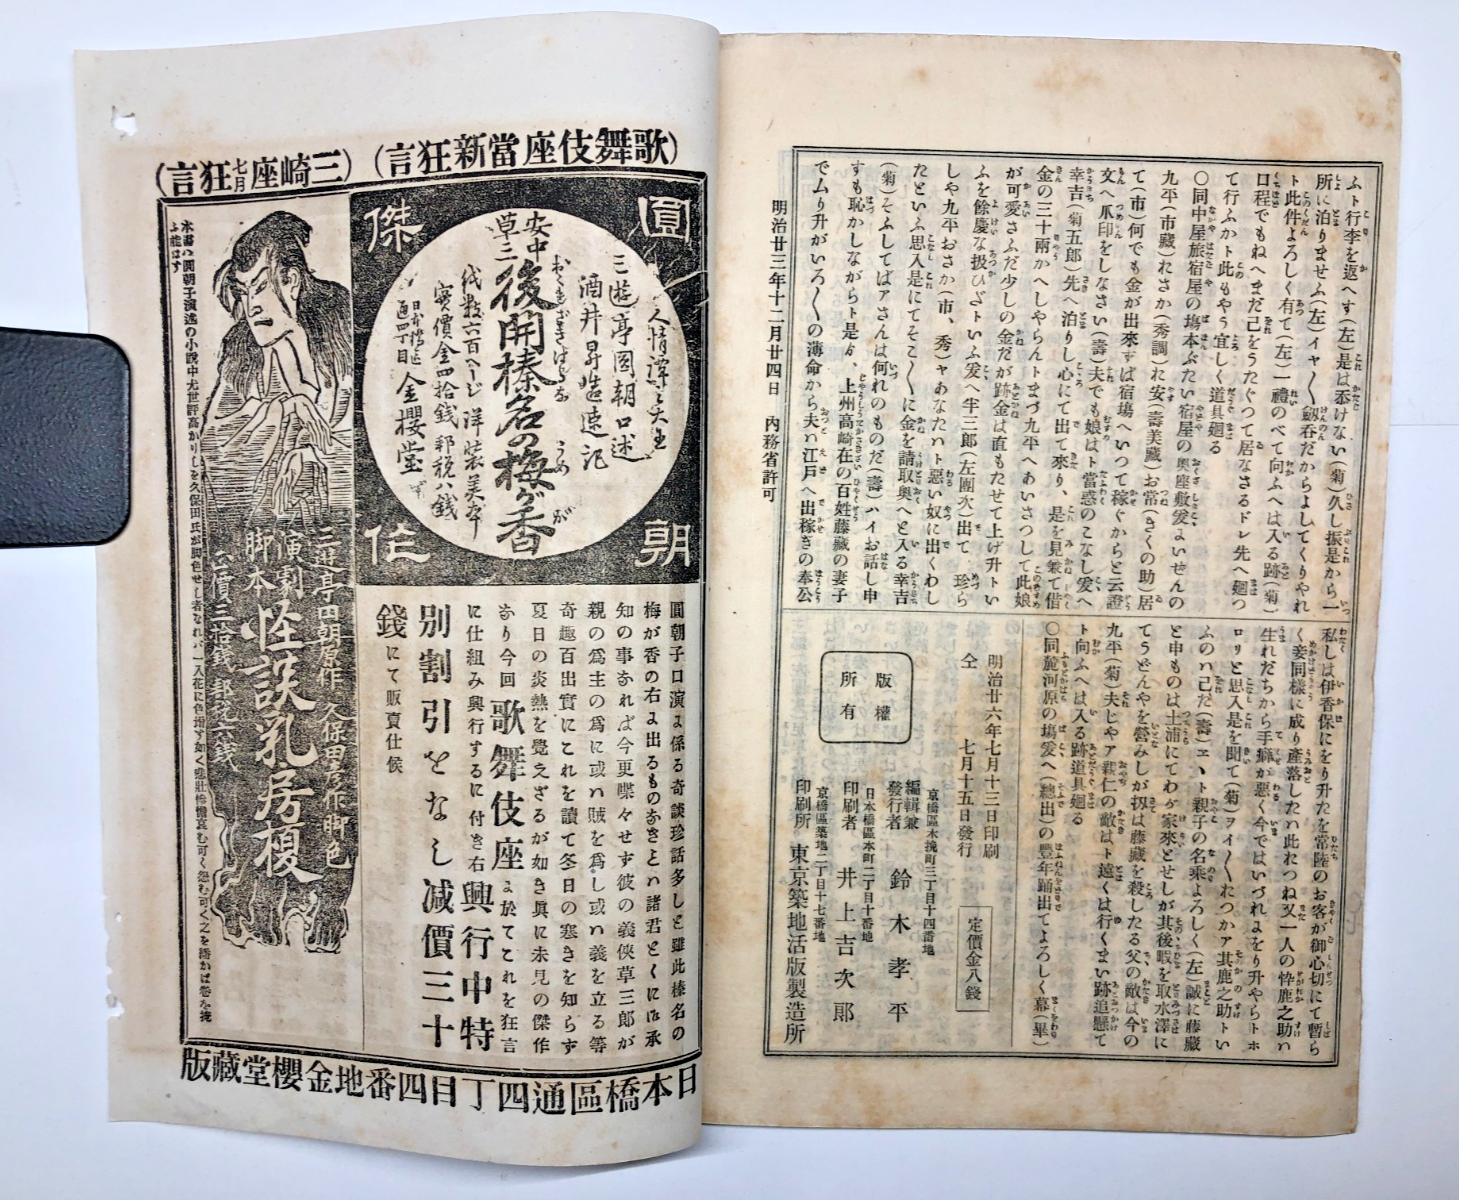 ふト行李を返へす(左)是は忝けない(菊)久し振是から一
所に泊りませふ(左)イヤ〳〵劔呑だからよしてくりやれ
ト此件よろしく有て(左)一禮のべて向ふへは入る跡(菊)
日程でもねへまだ己をうたぐつて居なさるドレ先へ廻つ
て行ふかト此もやう宜しく道具廻る
〇同中屋旅宿屋の塲本ぶたい宿屋の奧座敷爰よいせんの
九平(市藏)れさか(秀調)に安(壽美藏)お常(きくの助)居
て(市)何でも金が出來ずば宿塲へいつて稼ぐからと云證
文へ爪印をしなさい(壽)夫でも娘はト當惑のこなし爰へ
幸吉(菊五郎)先へ泊りし心にて出て來り、是を見兼て借
金の三十兩かへしやらんトまづ九平へあいさつして此娘
が可愛さふだ少しの金だが跡金は直もたせて上げ升トい
ふを餘慶な扱ひざトいふ爰へ半三郎(左團次)出て 珍ら
しや九平おさか(市、秀)ャあなたハト悪い奴に出くわし
たといふ思入是にてそこ〳〵に金を請取奧へと入る幸吉
(菊)そふしてばアさんは何れのものだ(壽)ハイお話し申
すも恥かしながらト是ゟ、上州高崎在の百姓藤藏の妻子
でムり升がいろ〳〵の薄命から夫ハ江戸へ出稼ぎの奉公
私しは伊香保にをり升たを常陸のお客が御心切にて暫ら
く妾同樣に成り產落したハ此れつね又一人の忰鹿之助ハ
生れだちから手癖が悪く今ではいづれよをり升やらトホ
ロリと思入是を聞て(菊)ヲィ〳〵れつかア其鹿之助トい
ふのハ己だ(壽)ヱヽト親子の名乘よろしく(左)誠に藤藏
と申ものは土浦にてわが家來とせしが其後暇を取水澤に
てうどんやを營みしが扨は藤藏を殺したる父の敵は今の
九平(菊)夫じやア親仁の敵はト遠くは行くまい跡追懸て
ト向ふへは入る跡道具廻る
〇同箆河原の塲爰へ(總出)の豐年踊出てよろしく幕(畢)
明治廿三年十二月廿四日 內務省許可
明治廿六年七月十三日印刷
仝 七月十五日發行
定價金八錢
版權
所有
京橋區木挽町三丁目十四番地
編輯兼
發行者 鈴木孝平
日本橋區本町二丁目十番地
印刷者 井上吉次郎
京橋區築地二丁目十七番地
印刷所 東京築地活版製造所
(歌舞伎座當新狂言)
(三崎座七月狂言)
圓朝
傑作
人情譚之天主
三遊亭圓朝口述
酒井昇造速記
安中
草三
後開榛名の梅ヶ香
おくれざきはるな うめ が
紙數六百ページ 洋裝美本
實價金四拾錢 郵稅八錢
日本橋區
通四丁目 金櫻堂
圓朝子口演よ係る奇談珍話多しと雖此榛名の
梅が香の右よ出るものなきとハ諸君とくに御承
知の事なれば今更喋々せず彼の義俠草三郎が
親の爲主の爲に或ハ賊を爲し或ハ義を立る等
奇趣百出實にこれを讀て冬日の寒きを知らず
夏日の炎熱を覺えざるが如き眞に未見の傑作
なり今回歌舞伎座よ於てこれを狂言
に仕組み興行するに付き右興行中特
別割引をなし減價三十
錢にて販賣仕候
三遊亭円朝原作 久保田彦作脚色
演劇
脚本 怪談乳房榎
本書ハ圓朝子演述の小說中尤世評高かりしを久保田氏が脚色せし者なれバ一入花に色增す如く
日本橋區通四丁目四番地金櫻堂藏版